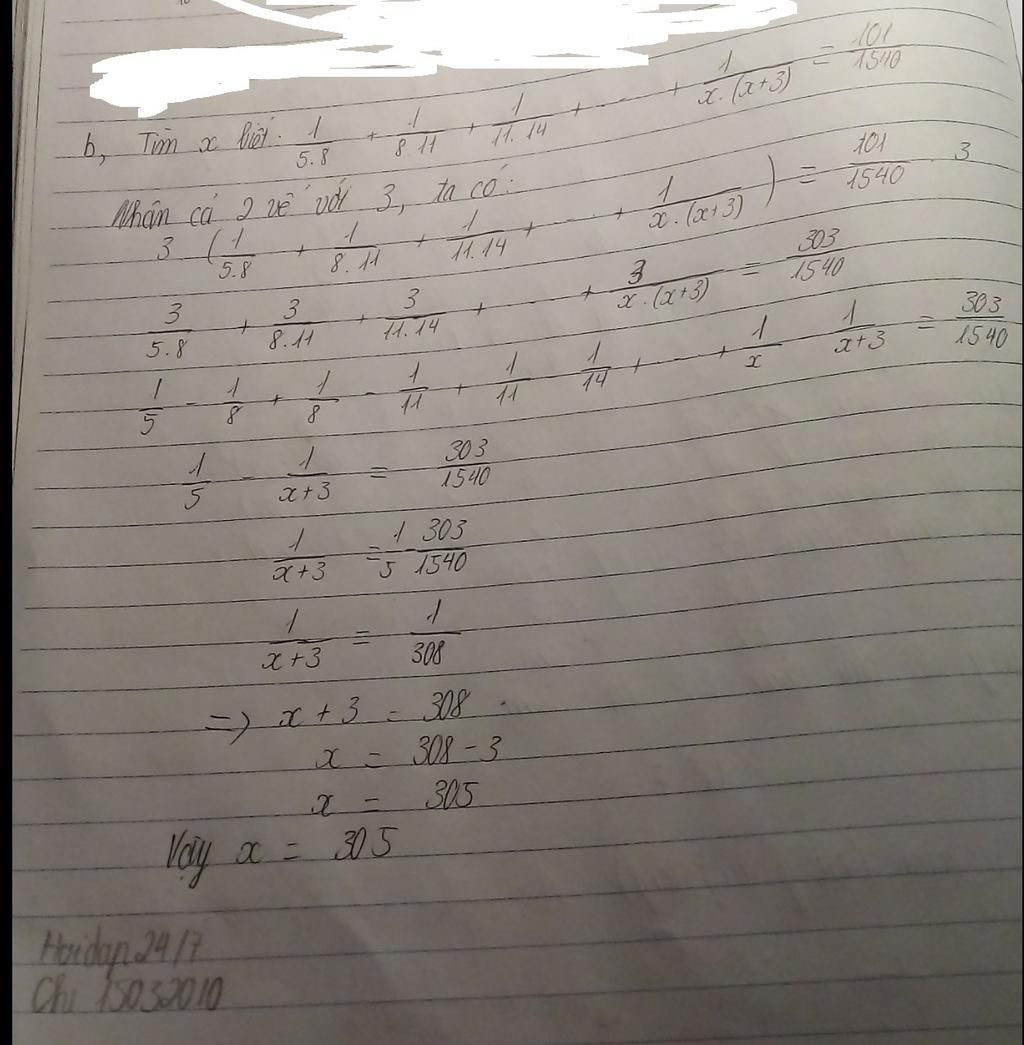 b, Tìm x biết: 1/5.8 + 1/8.11 + 1/11.14 + ... + 1/x.(x+3) = 101/1540
Nhân cả 2 vế với 3, ta có:
3 (1/5.8 + 1/8.11 + 1/11.14 + ... + 1/x.(x+3)) = 101/1540 . 3
3/5.8 + 3/8.11 + 3/11.14 + ... + 3/x.(x+3) = 303/1540
1/5 - 1/8 + 1/8 - 1/11 + 1/11 - 1/14 + ... + 1/x - 1/x+3 = 303/1540
1/5 - 1/x+3 = 303/1540
1/x+3 = 1/5 - 303/1540
1/x+3 = 1/308
=> x + 3 = 308
x = 308 - 3
x = 305
Vậy x = 305
Hoidap24/7
Chi 15032010